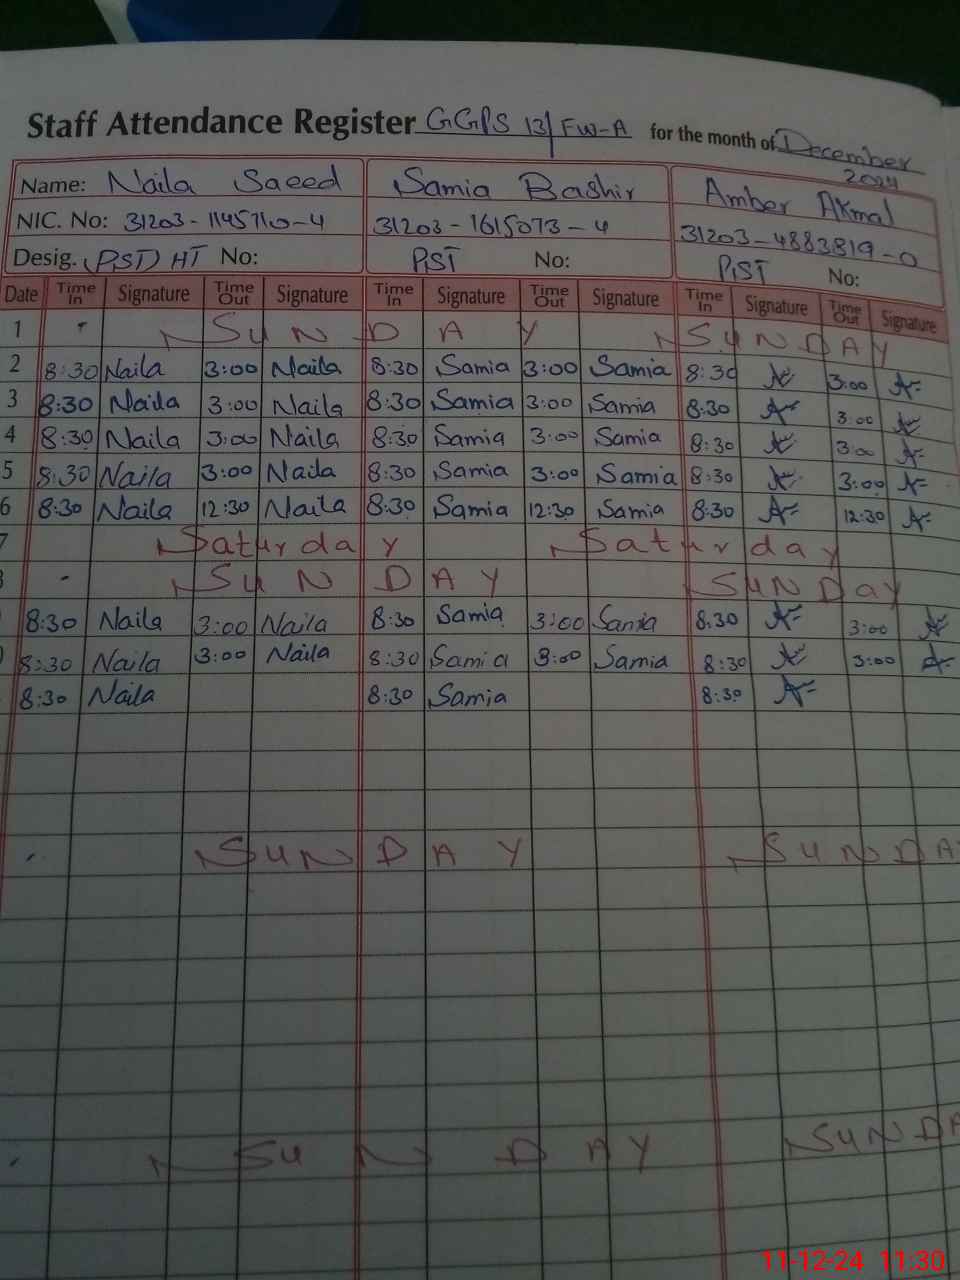 Staff Attendance Register GGPS 13/FW-A for the month of December 2024
Name: Naila Saeed Samia Bashir Amber Akmal
NIC. No: 31203-1145710-4 31203-1615073-4 31203-4883819-0
Desig. (PST) HT No: PST No: PST No:
Date Time In Signature Time Out Signature Time In Signature Time Out Signature Time In Signature Time Out Signature
1 SUNDAY SUNDAY
2 8:30 Naila 3:00 Naila 8:30 Samia 3:00 Samia 8:30 3:00
3 8:30 Naila 3:00 Naila 8:30 Samia 3:00 Samia 8:30 3:00
4 8:30 Naila 3:00 Naila 8:30 Samia 3:00 Samia 8:30 3:00
5 8:30 Naila 3:00 Naila 8:30 Samia 3:00 Samia 8:30 3:00
6 8:30 Naila 12:30 Naila 8:30 Samia 12:30 Samia 8:30 12:30
7 Saturday Saturday
SUNDAY SUNDAY
8:30 Naila 3:00 Naila 8:30 Samia 3:00 Samia 8:30 3:00
8:30 Naila 3:00 Naila 8:30 Samia 3:00 Samia 8:30 3:00
8:30 Naila 8:30 Samia 8:30
SUNDAY SUNDA
SUNDAY SUNDA
11-12-24 11:30